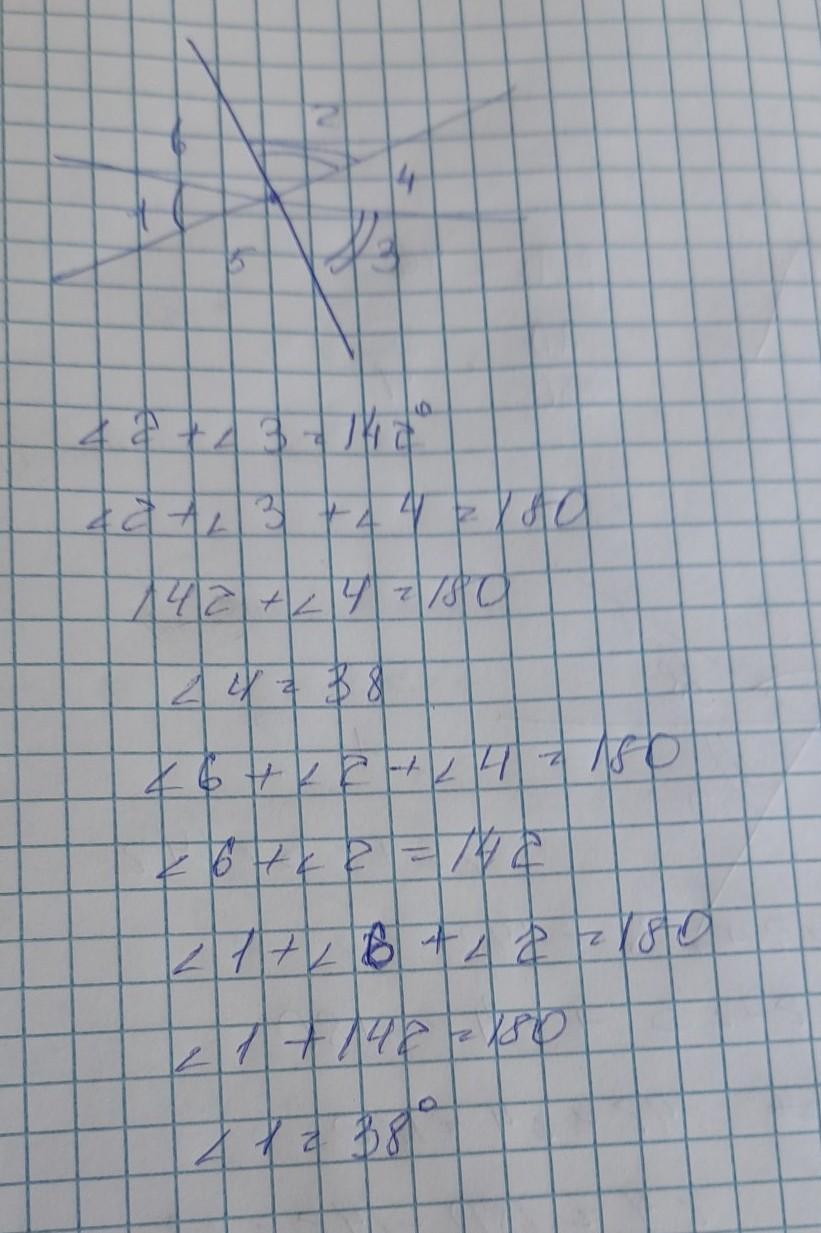 2
6
4
1
5
3
∠2 + ∠3 = 142°
∠2 + ∠3 + ∠4 = 180
142 + ∠4 = 180
∠4 = 38
∠6 + ∠2 + ∠4 = 180
∠6 + ∠2 = 142
∠1 + ∠6 + ∠2 = 180
∠1 + 142 = 180
∠1 = 38°